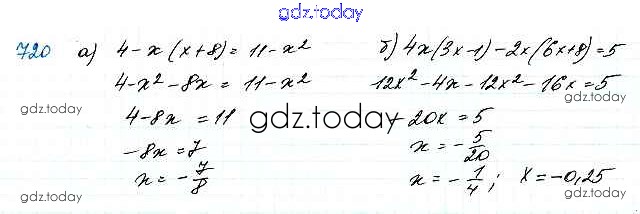 gdz.today
720 а) 4 - x(x+8) = 11 - x²
4 - x² - 8x = 11 - x²
4 - 8x = 11
-8x = 7
x = -7/8
б) 4x(3x-1) - 2x(6x+8) = 5
12x² - 4x - 12x² - 16x = 5
-20x = 5
x = -5/20
x = -1/4; x = -0,25
gdz.today
gdz.today
gdz.today
gdz.today
gdz.today